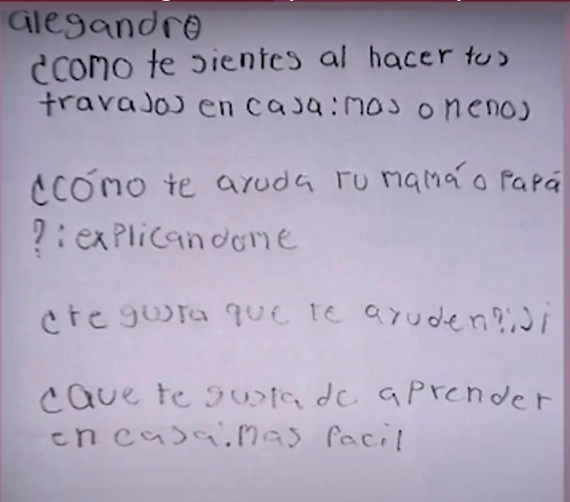 alegandro
¿como te sientes al hacer tus
travajos en casa:mas o menos
¿cómo te ayuda tu mamá o Papá
?:explicandome
¿te gusta que te ayuden?:si
¿que te gusta de aprender
en casa:mas facil